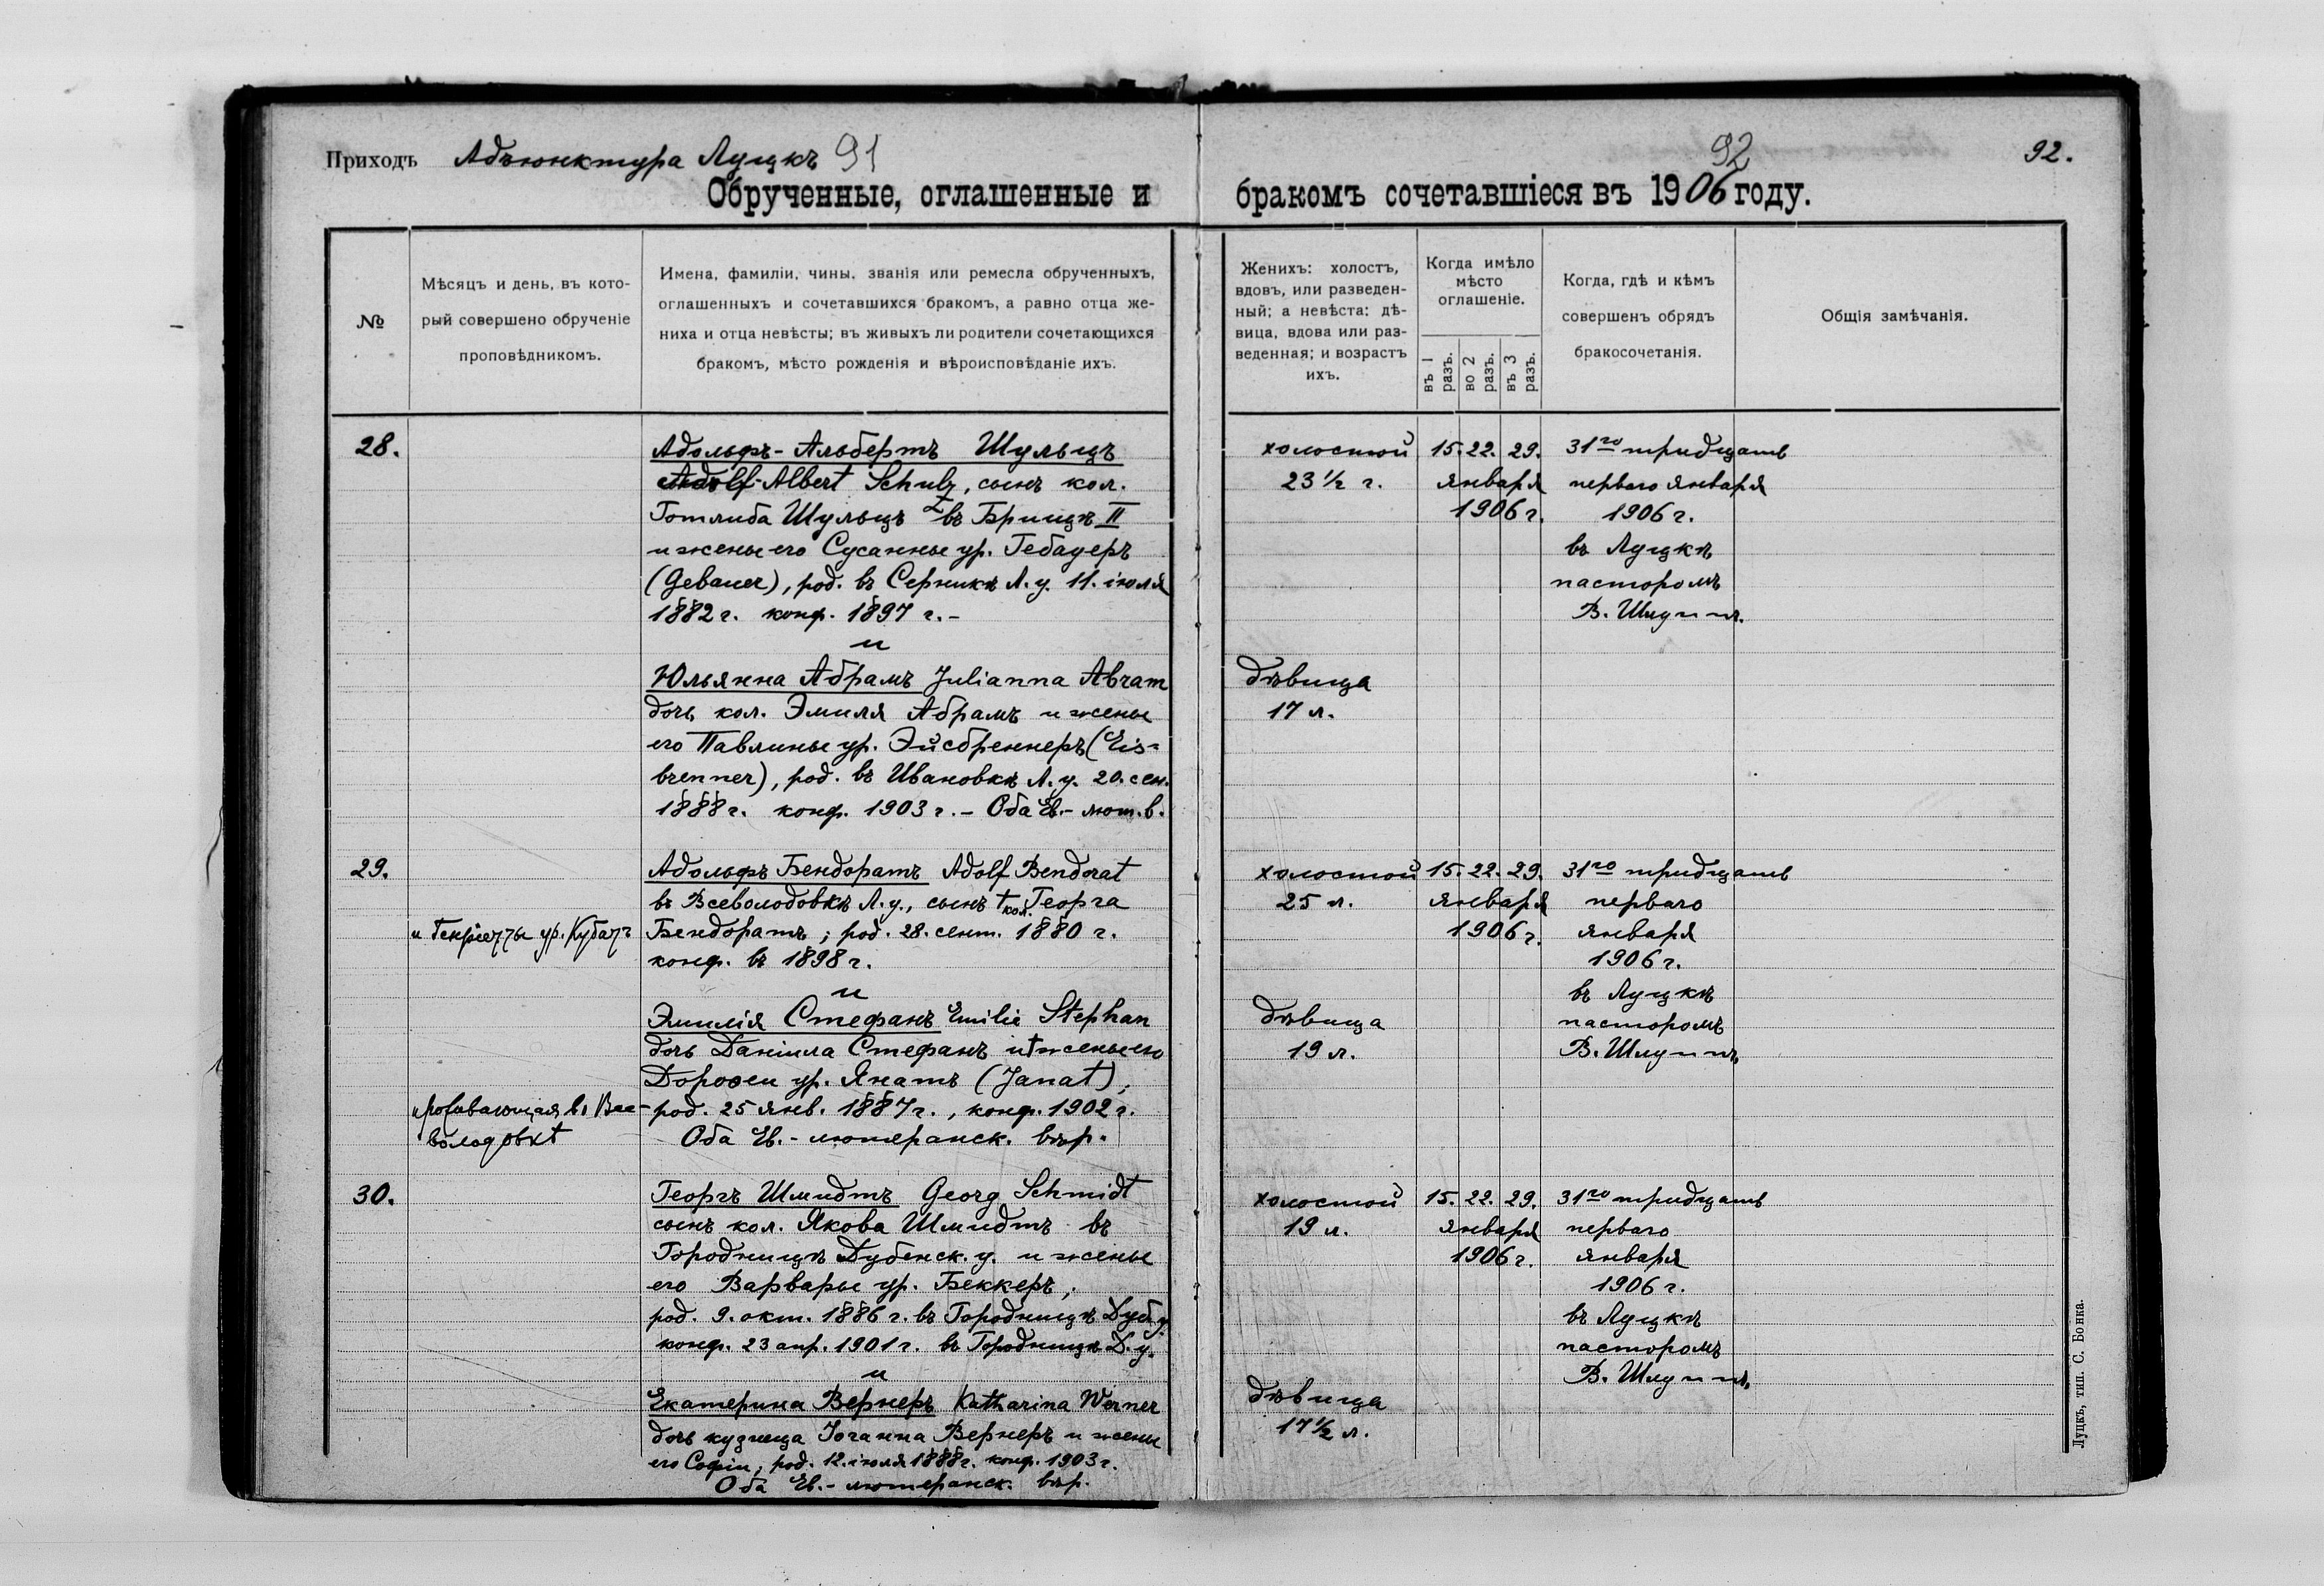 Приходъ Адъюнктура Луцкъ 91
92
92.
Обрученные, оглашенные и бракомъ сочетавшіеся въ 1906 году.
№
Мѣсяцъ и день, въ кото-
рый совершено обрученіе
проповѣдникомъ.
Имена, фамиліи, чины, званія или ремесла обрученныхъ,
оглашенныхъ и сочетавшихся бракомъ, а равно отца же-
ниха и отца невѣсты; въ живыхъ ли родители сочетающихся
бракомъ, мѣсто рожденія и вѣроисповѣданіе ихъ.
Женихъ: холостъ,
вдовъ, или разведен-
ный; а невѣста: дѣ-
вица, вдова или раз-
веденная; и возрастъ
ихъ.
Когда имѣло
мѣсто
оглашеніе.
въ 1 разъ.
во 2 разъ.
въ 3 разъ.
Когда, гдѣ и кѣмъ
совершенъ обрядъ
бракосочетанія.
Общія замѣчанія.
28.
Адольфъ-Альбертъ Шульцъ
Adolf-Albert Schulz, сынъ кол.
Готлиба Шульцъ въ Брищѣ II
и жены его Сусанны ур. Гебауеръ
(Gebauer), род. въ Серникѣ Л. у. 11. іюля
1882 г. конф. 1897 г. -
и
Юльянна Абрамъ Julianna Abram
дочь кол. Эмиля Абрамъ и жены
его Павлины ур. Эйсбреннеръ (Eis-
brenner), род. въ Ивановкѣ Л. у. 20. сен.
1888 г. конф. 1903 г. - Оба Ев.- лют. в.
холостой
23 1/2 г.
дѣвица
17 л.
15. 22. 29.
января
1906 г.
31го тридцать
перваго января
1906 г.
въ Луцкѣ
пасторомъ
В. Шлуппъ.
29.
Адольфъ Бендоратъ Adolf Bendorat
въ Всеволодовкѣ Л. у., сынъ † кол. Георга
и Генріетты ур. Кубатъ
Бендоратъ; род. 28. сент. 1880 г.
конф. въ 1898 г.
и
Эмилія Стефанъ Emilie Stephan
дочь Даніила Стефанъ и † жены его
Дороѳеи ур. Янатъ (Janat),
проживающая въ Все-
володовкѣ
род. 25 янв. 1887 г., конф. 1902 г.
Оба Ев.- лютеранск. вѣр.
холостой
25 л.
дѣвица
19 л.
15. 22. 29.
января
1906 г.
31го тридцать
перваго
января
1906 г.
въ Луцкѣ
пасторомъ
В. Шлуппъ.
30.
Георгъ Шмидтъ Georg Schmidt
сынъ кол. Якова Шмидтъ въ
Городницѣ Дубенск. у. и жены
его Варвары ур. Беккеръ,
род. 9. окт. 1886 г. въ Городницѣ Дуб. у.
конф. 23 апр. 1901 г. въ Городницѣ Д. у.
и
Екатерина Вернеръ Katharina Werner
дочь кузнеца Іоганна Вернеръ и жены
его Софіи, род. 12. іюля 1888 г. конф. 1903 г.
Оба Ев.- лютеранск. вѣр.
холостой
19 л.
дѣвица
17 1/2 л.
15. 22. 29.
января
1906 г.
31го тридцать
перваго
января
1906 г.
въ Луцкѣ
пасторомъ
В. Шлуппъ.
Луцкъ, тип. С. Бонка.